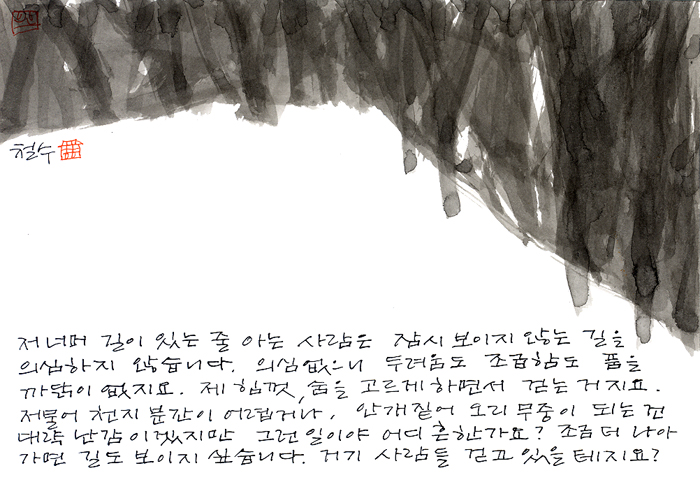 철수
저 너머 길이 있는 줄 아는 사람은 잠시 보이지 않는 길을
의심하지 않습니다. 의심 없으니 두려움도 조급함도 품을
까닭이 없지요. 제 힘껏, 숨을 고르게 하면서 걷는 거지요.
저물어 천지 분간이 어렵거나, 안개 짙어 오리무중이 되는 건
대략 난감이겠지만 그런 일이야 어디 흔한가요? 조금 더 나아
가면 길도 보이지 싶습니다. 거기 사람들 걷고 있을 테지요?